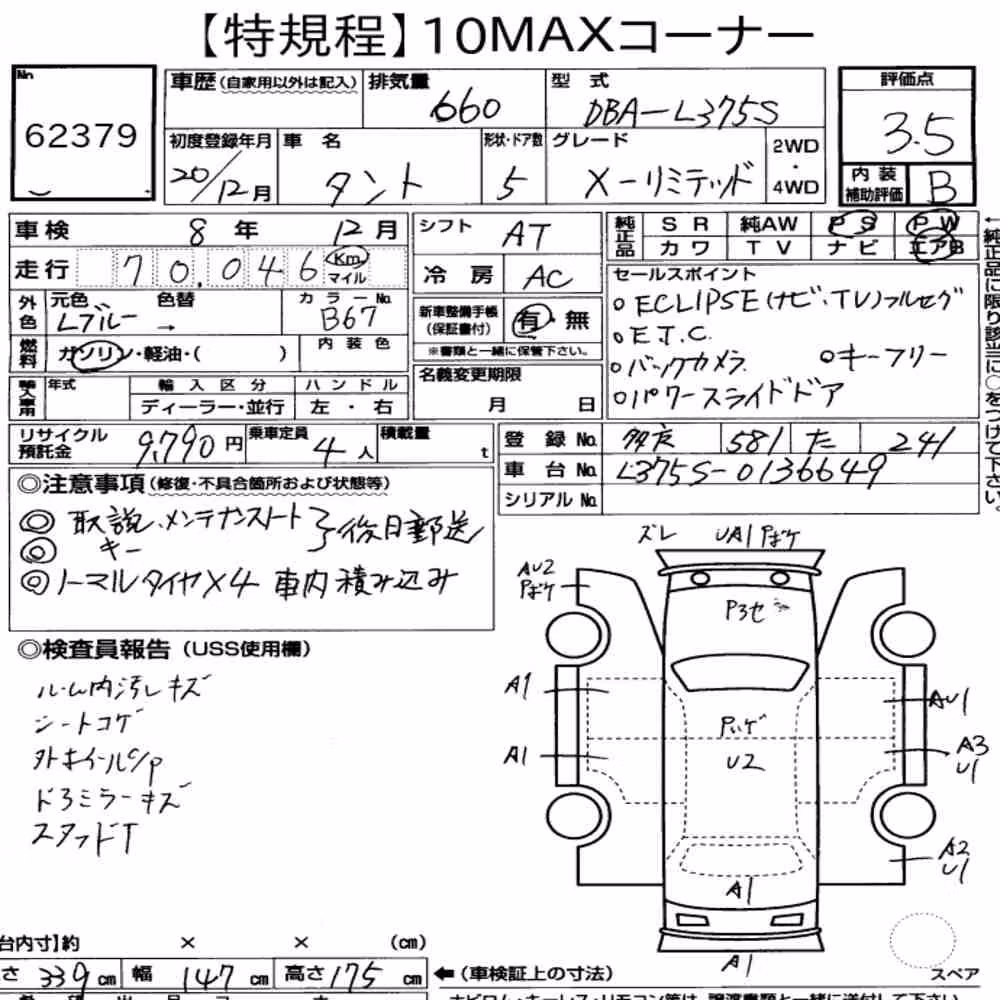 【特規程】10MAXコーナー
No.
62379
車歴(自家用以外は記入)
排気量
660
型式
DBA-L375S
評価点
3.5
初度登録年月
20/12月
車名
タント
形状・ドア数
5
グレード
X-リミテッド
2WD
・
4WD
内装
補助評価
B
車検
8年 12月
走行
70,046
Km
マイル
シフト
AT
冷房
AC
純正品
SR 純AW PS PW
カワ TV ナビ エアB
←純正品に限り該当に○をつけて下さい。
外色
元色
Lブルー
色替
→
カラーNo.
B67
燃料
ガソリン・軽油・( )
内装色
新車整備手帳
(保証書付)
有・無
※書類と一緒に保管下さい。
セールスポイント
○ECLIPSE(ナビ・TV)フルセグ
○E.T.C.
○バックカメラ ○キーフリー
○パワースライドドア
輸入車用
年式
輸入区分
ディーラー・並行
ハンドル
左・右
名義変更期限
月 日
リサイクル
預託金
9,790円
乗車定員
4人
積載量
t
登録No.
581 た 241
車台No.
L375S-0136649
シリアルNo.
◎注意事項(修復・不具合箇所および状態等)
◎取説、メンテナンスノート
◎キー
後日郵送
◎ノーマルタイヤ×4 車内積み込み
◎検査員報告(USS使用欄)
ルーム内汚レキズ
シートコゲ
外ホイールC/P
ドアミラーキズ
スタッドT
ズレ UA1 Pボケ
AU2
Pボケ
A1
A1
U2
AU1
A3
U1
A2
U1
A1
A1
スペア
台内寸】約 × × (cm)
さ 339cm 幅 147cm 高さ175cm
←(車検証上の寸法)